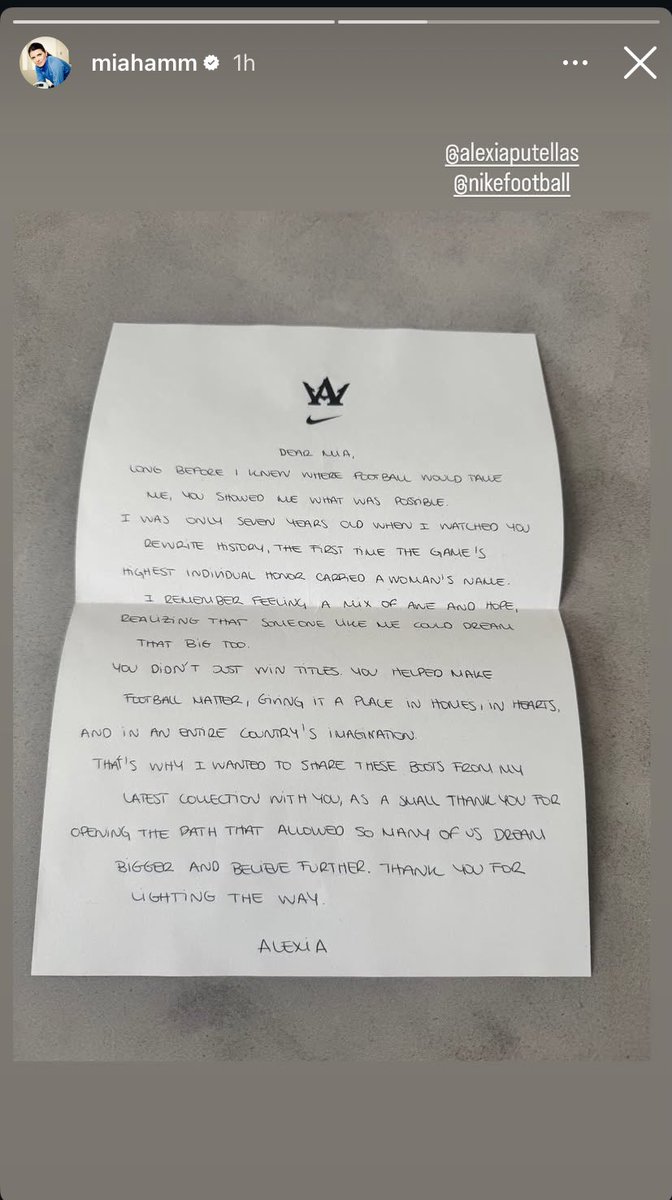 miahamm 1h
@alexiaputellas
@nikefootball
DEAR MIA,
LONG BEFORE I KNEW WHERE FOOTBALL WOULD TAKE
ME, YOU SHOWED ME WHAT WAS POSSIBLE.
I WAS ONLY SEVEN YEARS OLD WHEN I WATCHED YOU
REWRITE HISTORY, THE FIRST TIME THE GAME'S
HIGHEST INDIVIDUAL HONOR CARRIED A WOMAN'S NAME.
I REMEMBER FEELING A MIX OF AWE AND HOPE,
REALIZING THAT SOMEONE LIKE ME COULD DREAM
THAT BIG TOO.
YOU DIDN'T JUST WIN TITLES. YOU HELPED MAKE
FOOTBALL MATTER, GIVING IT A PLACE IN HOMES, IN HEARTS,
AND IN AN ENTIRE COUNTRY'S IMAGINATION.
THAT'S WHY I WANTED TO SHARE THESE BOOTS FROM MY
LATEST COLLECTION WITH YOU, AS A SMALL THANK YOU FOR
OPENING THE PATH THAT ALLOWED SO MANY OF US DREAM
BIGGER AND BELIEVE FURTHER. THANK YOU FOR
LIGHTING THE WAY.
ALEXIA